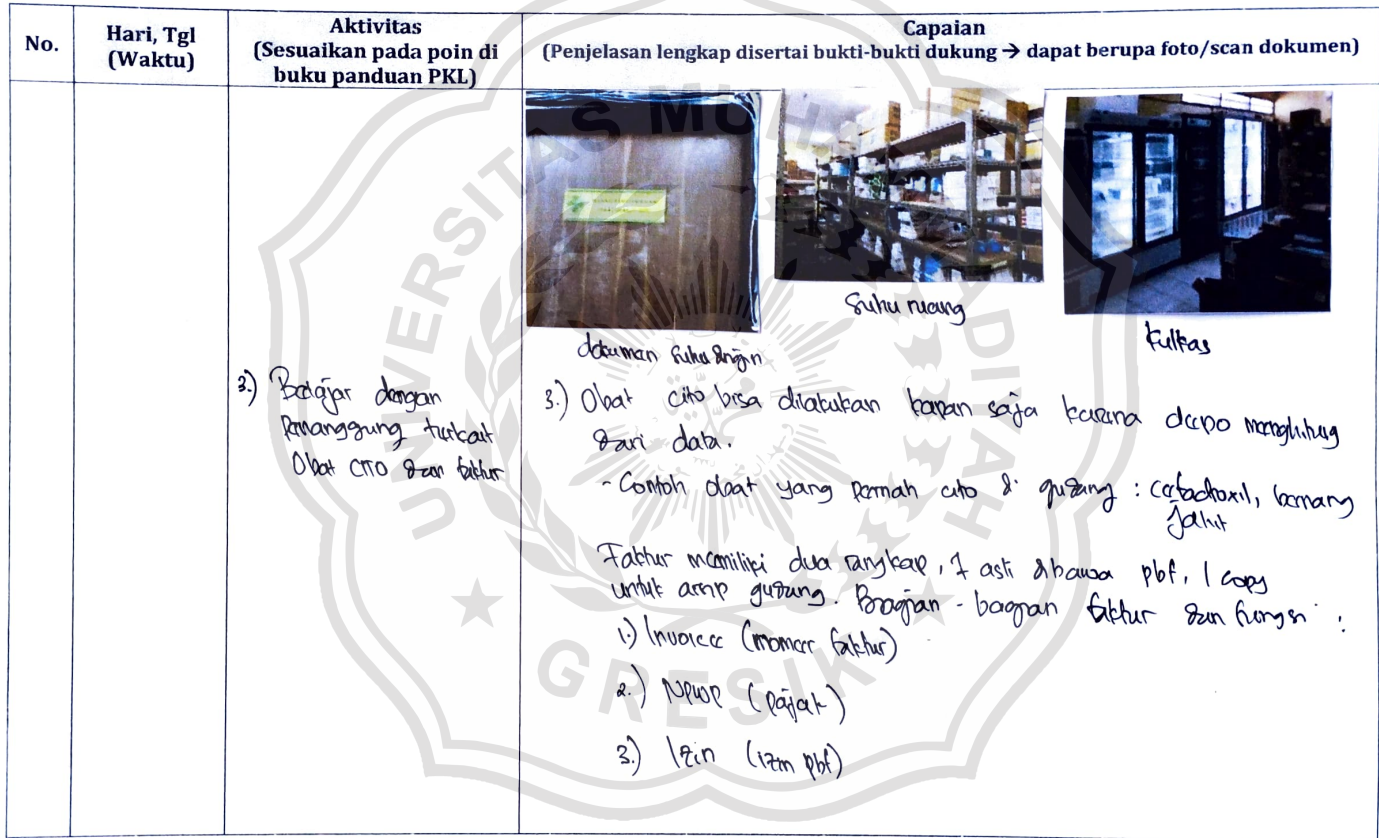 No.
Hari, Tgl
(Waktu)
Aktivitas
(Sesuaikan pada poin di
buku panduan PKL)
Capaian
(Penjelasan lengkap disertai bukti-bukti dukung → dapat berupa foto/scan dokumen)
dokumen suhu dingin
Suhu ruang
kulkas
3.) Belajar dengan
Penanggung terkait
Obat CITO dan faktur
3.) Obat cito bisa dilakukan kapan saja karena depo menghitung
dari data.
- Contoh obat yang pernah cito di gudang : cefadroxil, benang
Jahit
Faktur memiliki dua rangkap, 1 asli dibawa pbf, 1 copy
untuk arsip gudang. Bagian - bagian faktur dan fungsi :
1.) Invoice (nomor faktur)
2.) NPWP (pajak)
3.) Izin (izin pbf)
UNIVERSITAS MUHAMMADIYAH
GRESIK